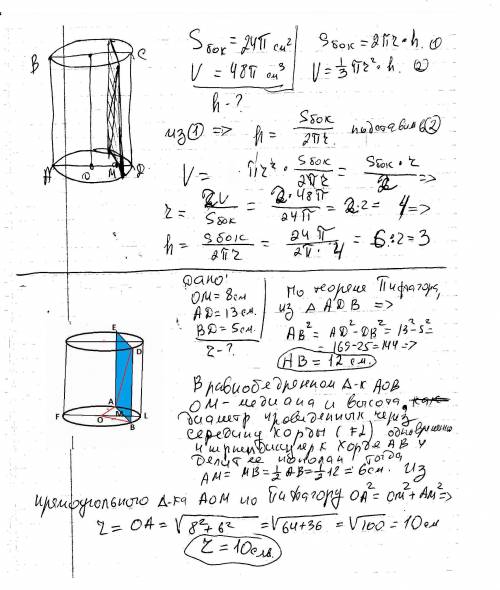 B C
A O M D
Sбок = 24π см²
V = 48π см³
h - ?
Sбок = 2πr · h. ①
V = 1/3 πr² · h. ②
из ① => h = Sбок / 2πr подставим в ②
V = πr² · Sбок / 2πr = Sбок · r / 2 =>
r = 2V / Sбок = 2 · 48π / 24π = 2·2 = 4 =>
h = Sбок / 2πr = 24π / 2π · 4 = 6:2 = 3
E
D
A
F O M L
B
Дано:
OM = 8см
AD = 13см.
BD = 5см.
r - ?
По теореме Пифагора,
из △ ADB =>
AB² = AD² - DB² = 13² - 5² =
= 169 - 25 = 144 =>
AB = 12 см.
В равнобедренном Δ-к AOB
OM - медиана и высота,
диаметр проведенный через
середину хорды (FL) одновременно
и перпендикулярен хорде AB и
делит ее пополам, тогда
AM = MB = 1/2 AB = 1/2 12 = 6см. Из
прямоугольного Δ-ка AOM по Пифагору OA² = OM² + AM² =>
r = OA = √8² + 6² = √64 + 36 = √100 = 10см
r = 10см.